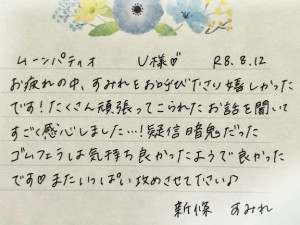 ムーンパティオ U様♡ R8.8.12
お疲れの中、すみれをお呼び下さり嬉しかった
です！たくさん頑張ってこられたお話を聞いて
すごく感心しました…！疑信暗鬼だった
ゴムフェラは気持ち良かったようで良かった
です♡またいっぱい攻めさせて下さい♪
新條 すみれ